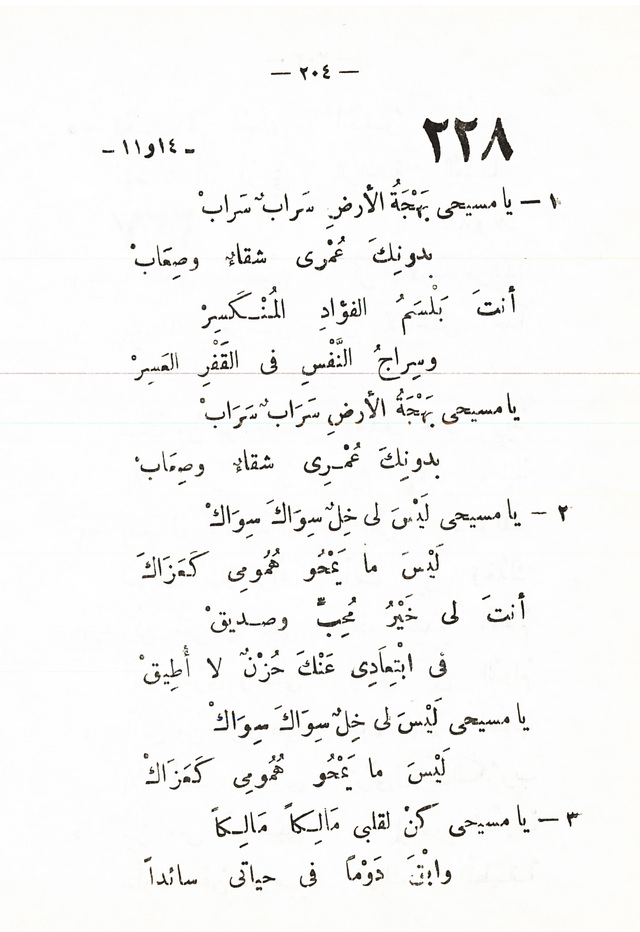 — ٢٠٤ —
٢٢٨
ـ ١٤و١١ ـ
١ — يا مسيحى بَهْجَةُ الأرضِ سَرابٌ سَرابْ
بدونِكَ عُمْرى شقاءٌ وصِعَابْ
أنتَ بَلْسَمُ الفؤادِ المُنْـكَسِرْ
وسِراجُ النَّفْسِ فى القَفْرِ العَسِرْ
يا مسيحى بَهْجَةُ الأرضِ سَرَابٌ سَرَابْ
بدونِكَ عُمْـرِى شقاءٌ وصِعَابْ
٢ — يا مسيحى لَيْسَ لى خِلٌ سِوَاكَ سِوَاكْ
لَيْسَ ما يَمْحُو هُمُومِى كَعَزَاكَ
أنتَ لى خَيْرُ مُحِبٍّ وصـديقْ
فى ابْتِعَادِى عَنْكَ حُزْنٌ لا أُطِيقْ
يا مسيحى لَيْسَ لى خِلٌ سِوَاكَ سِوَاكْ
لَيْسَ ما يَمْحُو هُمُومِى كَعَزَاكْ
٣ — يا مسيحى كُنْ لقلبى مَالِـكاً مَالِـكاً
وابْقَ دَوْماً فى حياتى سائداً